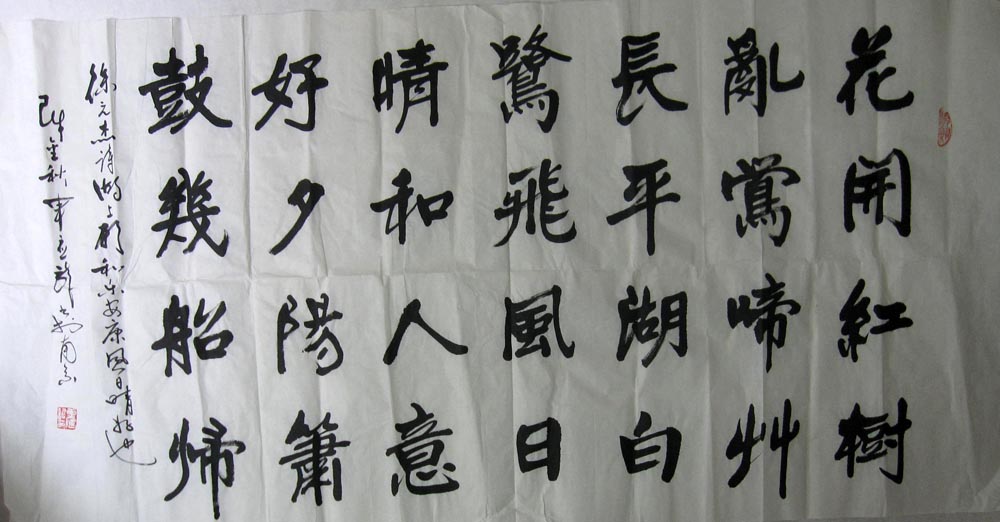 花開紅樹
亂鶯啼艸
長平湖白
鷺飛風日
晴和人意
好夕陽簫
鼓幾船歸
徐元杰詩湖上願和樂安康風日晴好也
金秋